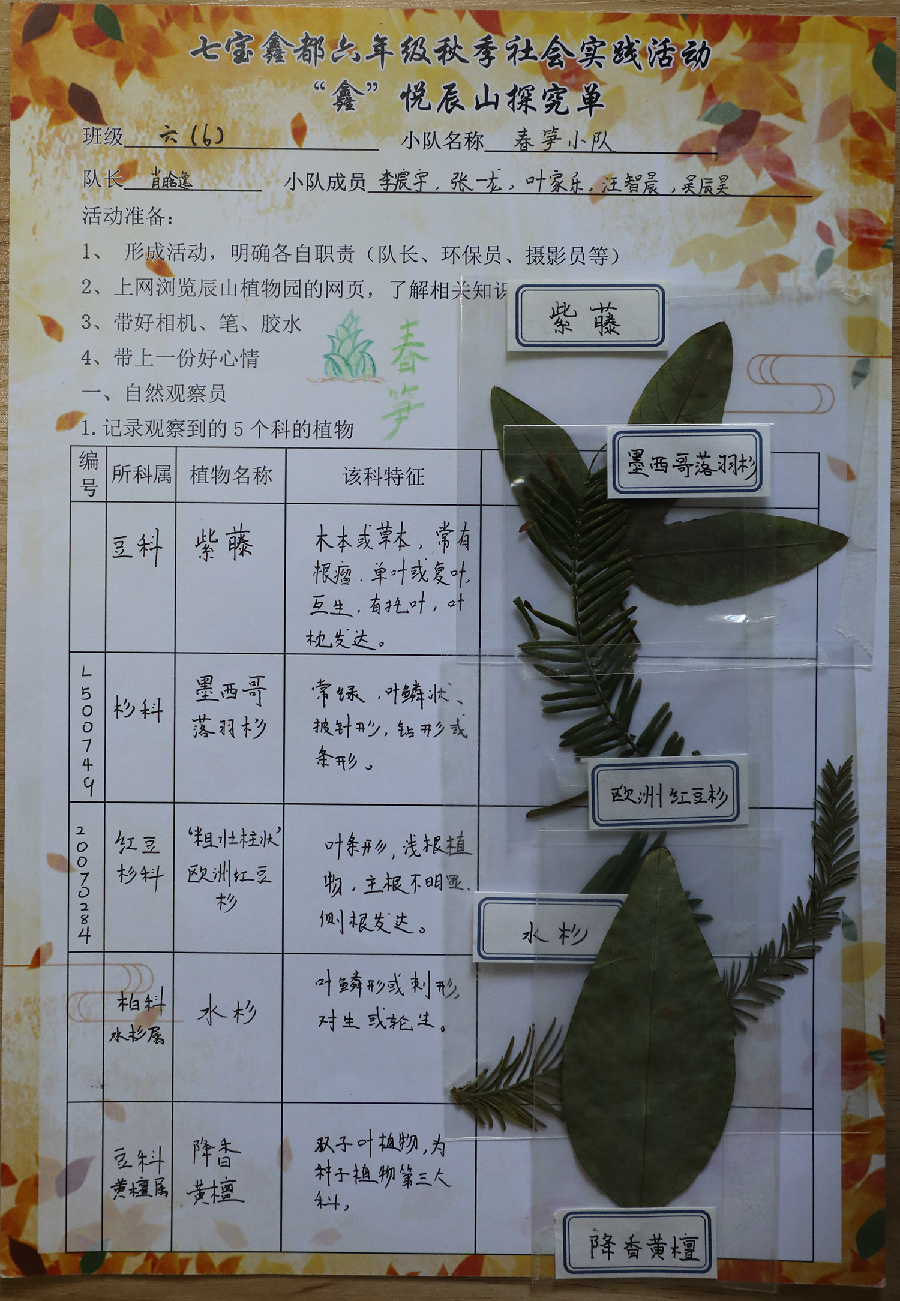 七宝鑫都六年级秋季社会实践活动
“鑫”悦辰山探究单
班级 六(6) 小队名称 春笋小队
队长 肖晗逸 小队成员 李宸宇，张一龙，叶家乐，汪智晨，吴辰昊
活动准备：
1、 形成活动，明确各自职责（队长、环保员、摄影员等）
2、上网浏览辰山植物园的网页，了解相关知识
3、带好相机、笔、胶水
4、带上一份好心情
春笋
一、自然观察员
1.记录观察到的5个科的植物
编号 所科属 植物名称 该科特征
豆科 紫藤 木本或草本，常有
根瘤，单叶或复叶，
互生，有托叶，叶
枕发达。
L500749 杉科 墨西哥
落羽杉
常绿，叶鳞状、
披针形，钻形或
条形。
20070284 红豆
杉科
“粗壮柱状”
欧洲红豆
杉
叶条形，浅根植
物，主根不明显、
侧根发达。
柏科
水杉属
水杉
叶鳞形或刺形，
对生或轮生。
豆科
黄檀属
降香
黄檀
双子叶植物，为
种子植物第三大
科。
紫藤
墨西哥落羽杉
欧洲红豆杉
水杉
降香黄檀